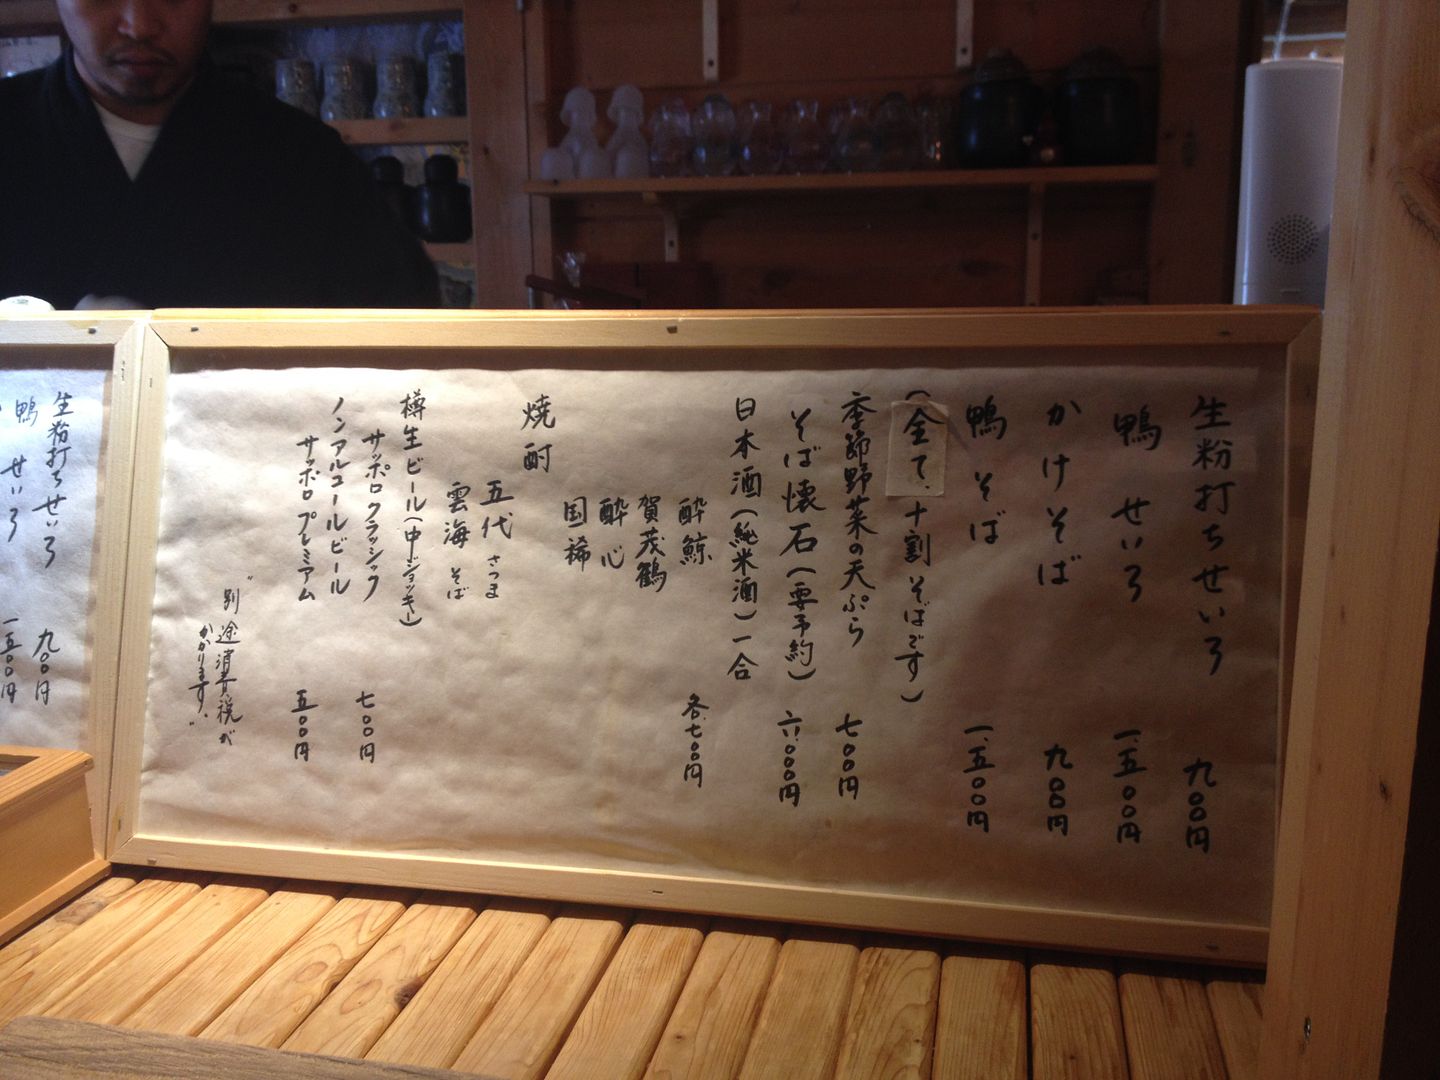 生粉打ちせいろ 九〇〇円
鴨せいろ 一、五〇〇円
かけそば 九〇〇円
鴨そば 一、五〇〇円
(全て、十割そばです)
季節野菜の天ぷら 七〇〇円
そば懐石(要予約) 六、〇〇〇円
日本酒(純米酒)一合
酔鯨 各、七〇〇円
賀茂鶴
酔心
国稀
焼酎
五代 さつま
雲海 そば
樽生ビール(中ジョッキー)
サッポロクラッシック 七〇〇円
ノンアルコールビール
サッポロプレミアム 五〇〇円
"別途消費税が
かかります。"
生粉打ちせいろ 九〇〇円
鴨せいろ 一、五〇〇円